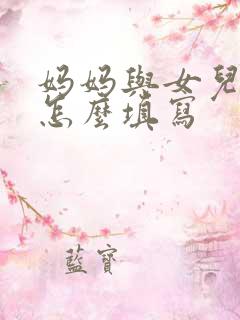 妈妈與女兒
怎麼填寫
藍寶